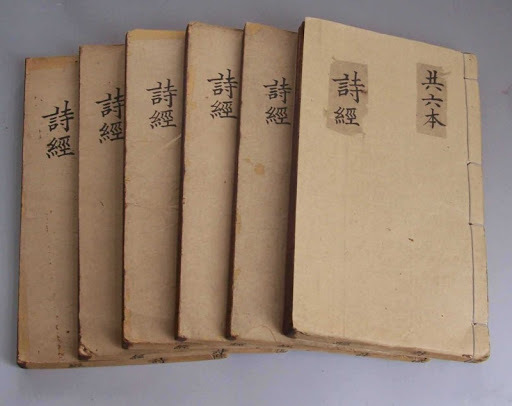 詩經
詩經
詩經
詩經
詩經
詩經
共六本